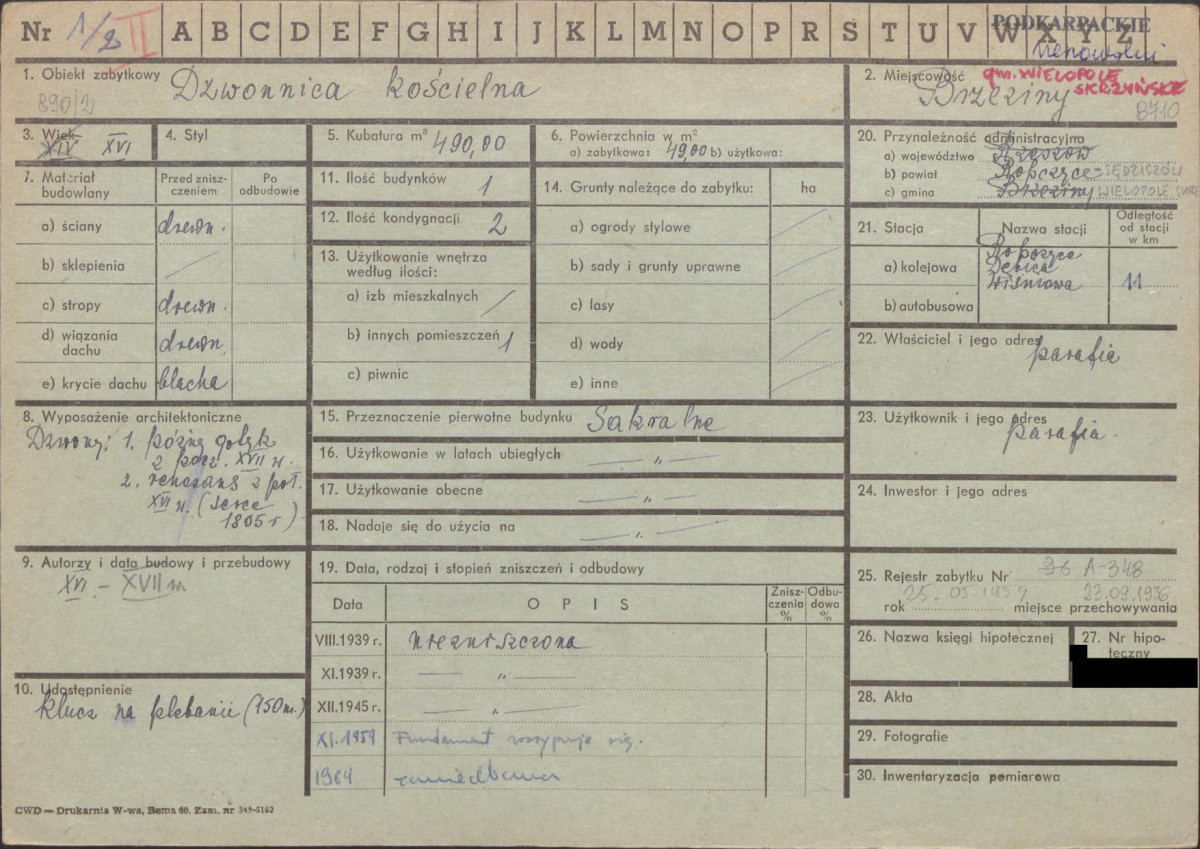 Nr 1/2 II A B C D E F G H I J K L M N O P R S T U V W X Y Z
PODKARPACKIE
1. Obiekt zabytkowy Dzwonnica kościelna
890/2
2. Miejscowość gm. WIELOPOLE
SKRZYŃSKIE
Brzeziny
8710
3. Wiek XIV XVI
4. Styl
5. Kubatura m³ 490,00
6. Powierzchnia w m²
a) zabytkowa: 49,00 b) użytkowa:
7. Materiał budowlany
Przed znisz-
czeniem
Po
odbudowie
a) ściany drewn.
b) sklepienia
c) stropy drewn.
d) wiązania
dachu drewn.
e) krycie dachu blacha
8. Wyposażenie architektoniczne
Dzwony: 1. późny gotyk
z pocz. XVII w.
2. renesans z poł.
XVI w. (serce
1805 r)
9. Autorzy i data budowy i przebudowy
XVI - XVII w
10. Udostępnienie
klucz na plebanii (150 m.)
11. Ilość budynków 1
12. Ilość kondygnacji 2
13. Użytkowanie wnętrza
według ilości:
a) izb mieszkalnych
b) innych pomieszczeń 1
c) piwnic
14. Grunty należące do zabytku: ha
a) ogrody stylowe
b) sady i grunty uprawne
c) lasy
d) wody
e) inne
15. Przeznaczenie pierwotne budynku Sakralne
16. Użytkowanie w latach ubiegłych — „ —
17. Użytkowanie obecne — „ —
18. Nadaje się do użycia na — „ —
19. Data, rodzaj i stopień zniszczeń i odbudowy
Data
O P I S
Znisz-
czenia
%
Odbu-
dowa
%
VIII.1939 r. niezniszczona
XI.1939 r. — „ —
XII.1945 r. — „ —
XI.1959 Fundament rozsypuje się.
1964 zaniedbana
20. Przynależność administracyjna
a) województwo Rzeszów
b) powiat Ropczyce - SĘDZISZÓW
c) gmina Brzeziny WIELOPOLE SKRZ
21. Stacja
Nazwa stacji
Odległość
od stacji
w km
a) kolejowa
Ropczyce
Dębica
Wiśniowa
11
b) autobusowa
22. Właściciel i jego adres
parafia
23. Użytkownik i jego adres
parafia.
24. Inwestor i jego adres
25. Rejestr zabytku Nr 96 A-348
rok 25-05-1959 miejsce przechowywania
23.09.1936
26. Nazwa księgi hipotecznej
27. Nr hipo-
teczny
28. Akta
29. Fotografie
30. Inwentaryzacja pomiarowa
CWD — Drukarnia W-wa, Bema 60. Zam. nr 349-5162